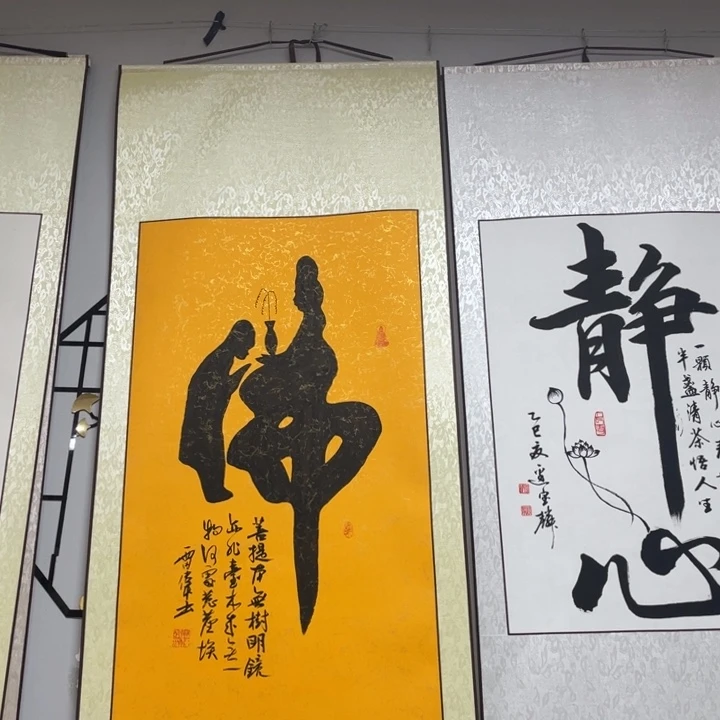 佛
菩提本無樹明鏡
亦非臺本來無一
物何處惹塵埃
静心
一顆静心
半盞清茶悟人生
乙巳夏